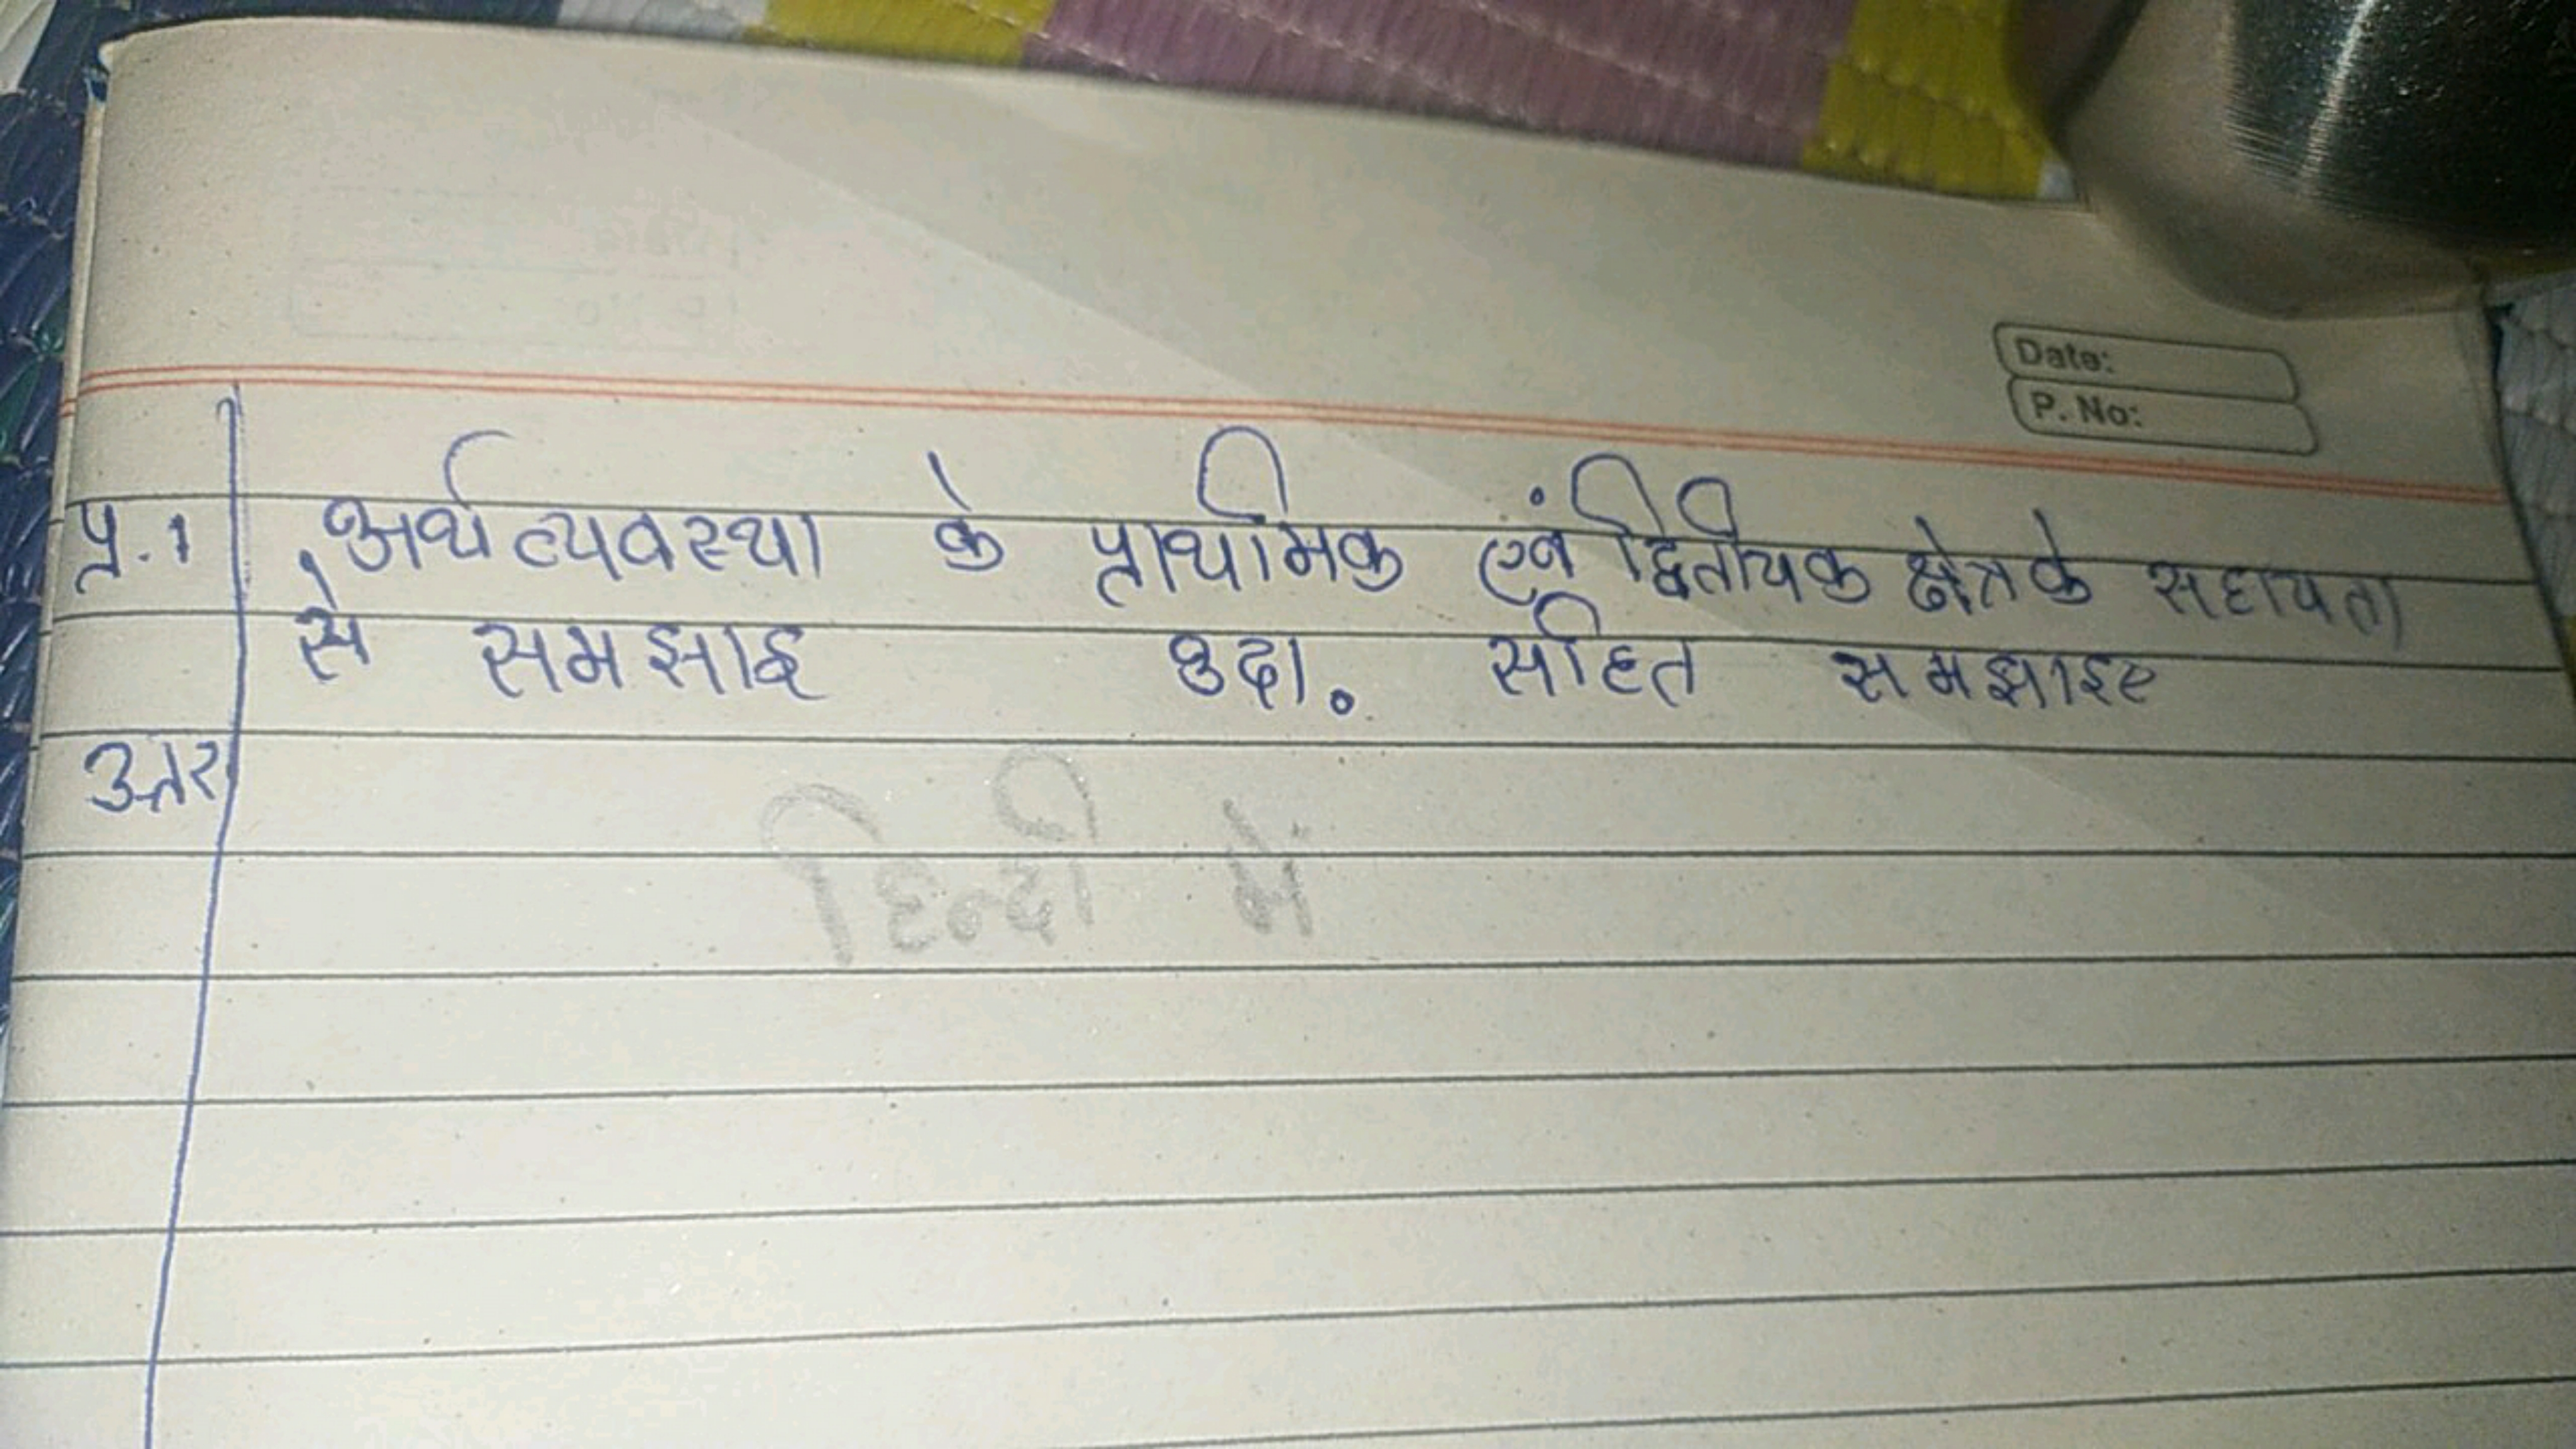 Date:
P. No:
प्र.1 अर्थव्यवस्था के प्राथमिक एवं द्वितीयक क्षेत्र के सहायता
से समझाइ उदा. सहित समझाइए
उत्तर
हिन्दी में